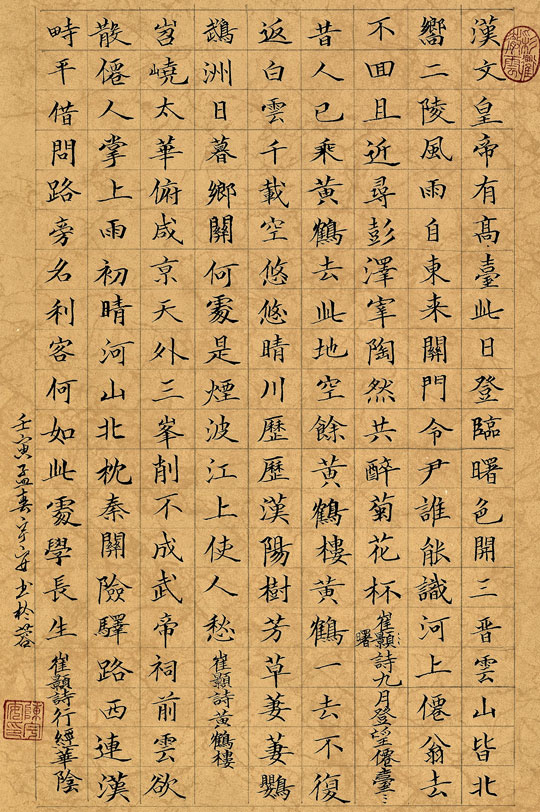 漢文皇帝有髙臺此日登臨曙色開三晉雲山皆北
嚮二陵風雨自東来關門令尹誰能識河上僊翁去
不回且近尋彭澤宰陶然共醉菊花杯
崔顥曙詩九月登望僊臺
昔人已乘黃鶴去此地空餘黃鶴樓黃鶴一去不復
返白雲千載空悠悠晴川歷歷漢陽樹芳草萋萋鸚
鵡洲日暮鄉關何處是煙波江上使人愁
崔顥詩黃鶴樓
岧嶢太華俯咸京天外三峯削不成武帝祠前雲欲
散僊人掌上雨初晴河山北枕秦關險驛路西連漢
畤平借問路旁名利客何如此處學長生
崔顥詩行經華陰
壬寅孟春於蓉